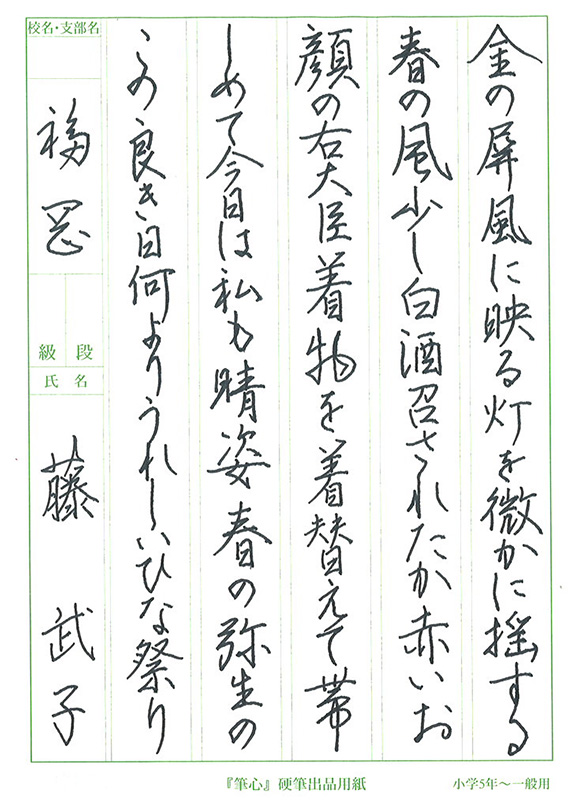 金の屏風に映る灯を微かに揺する
春の風少し白酒召されたか赤いお
顔の右大臣着物を着替えて帯
しめて今日は私も晴姿春の弥生の
この良き日何よりうれしいひな祭り
校名・支部名
福岡
級 段
氏 名
藤 武子
『筆心』硬筆出品用紙
小学5年〜一般用